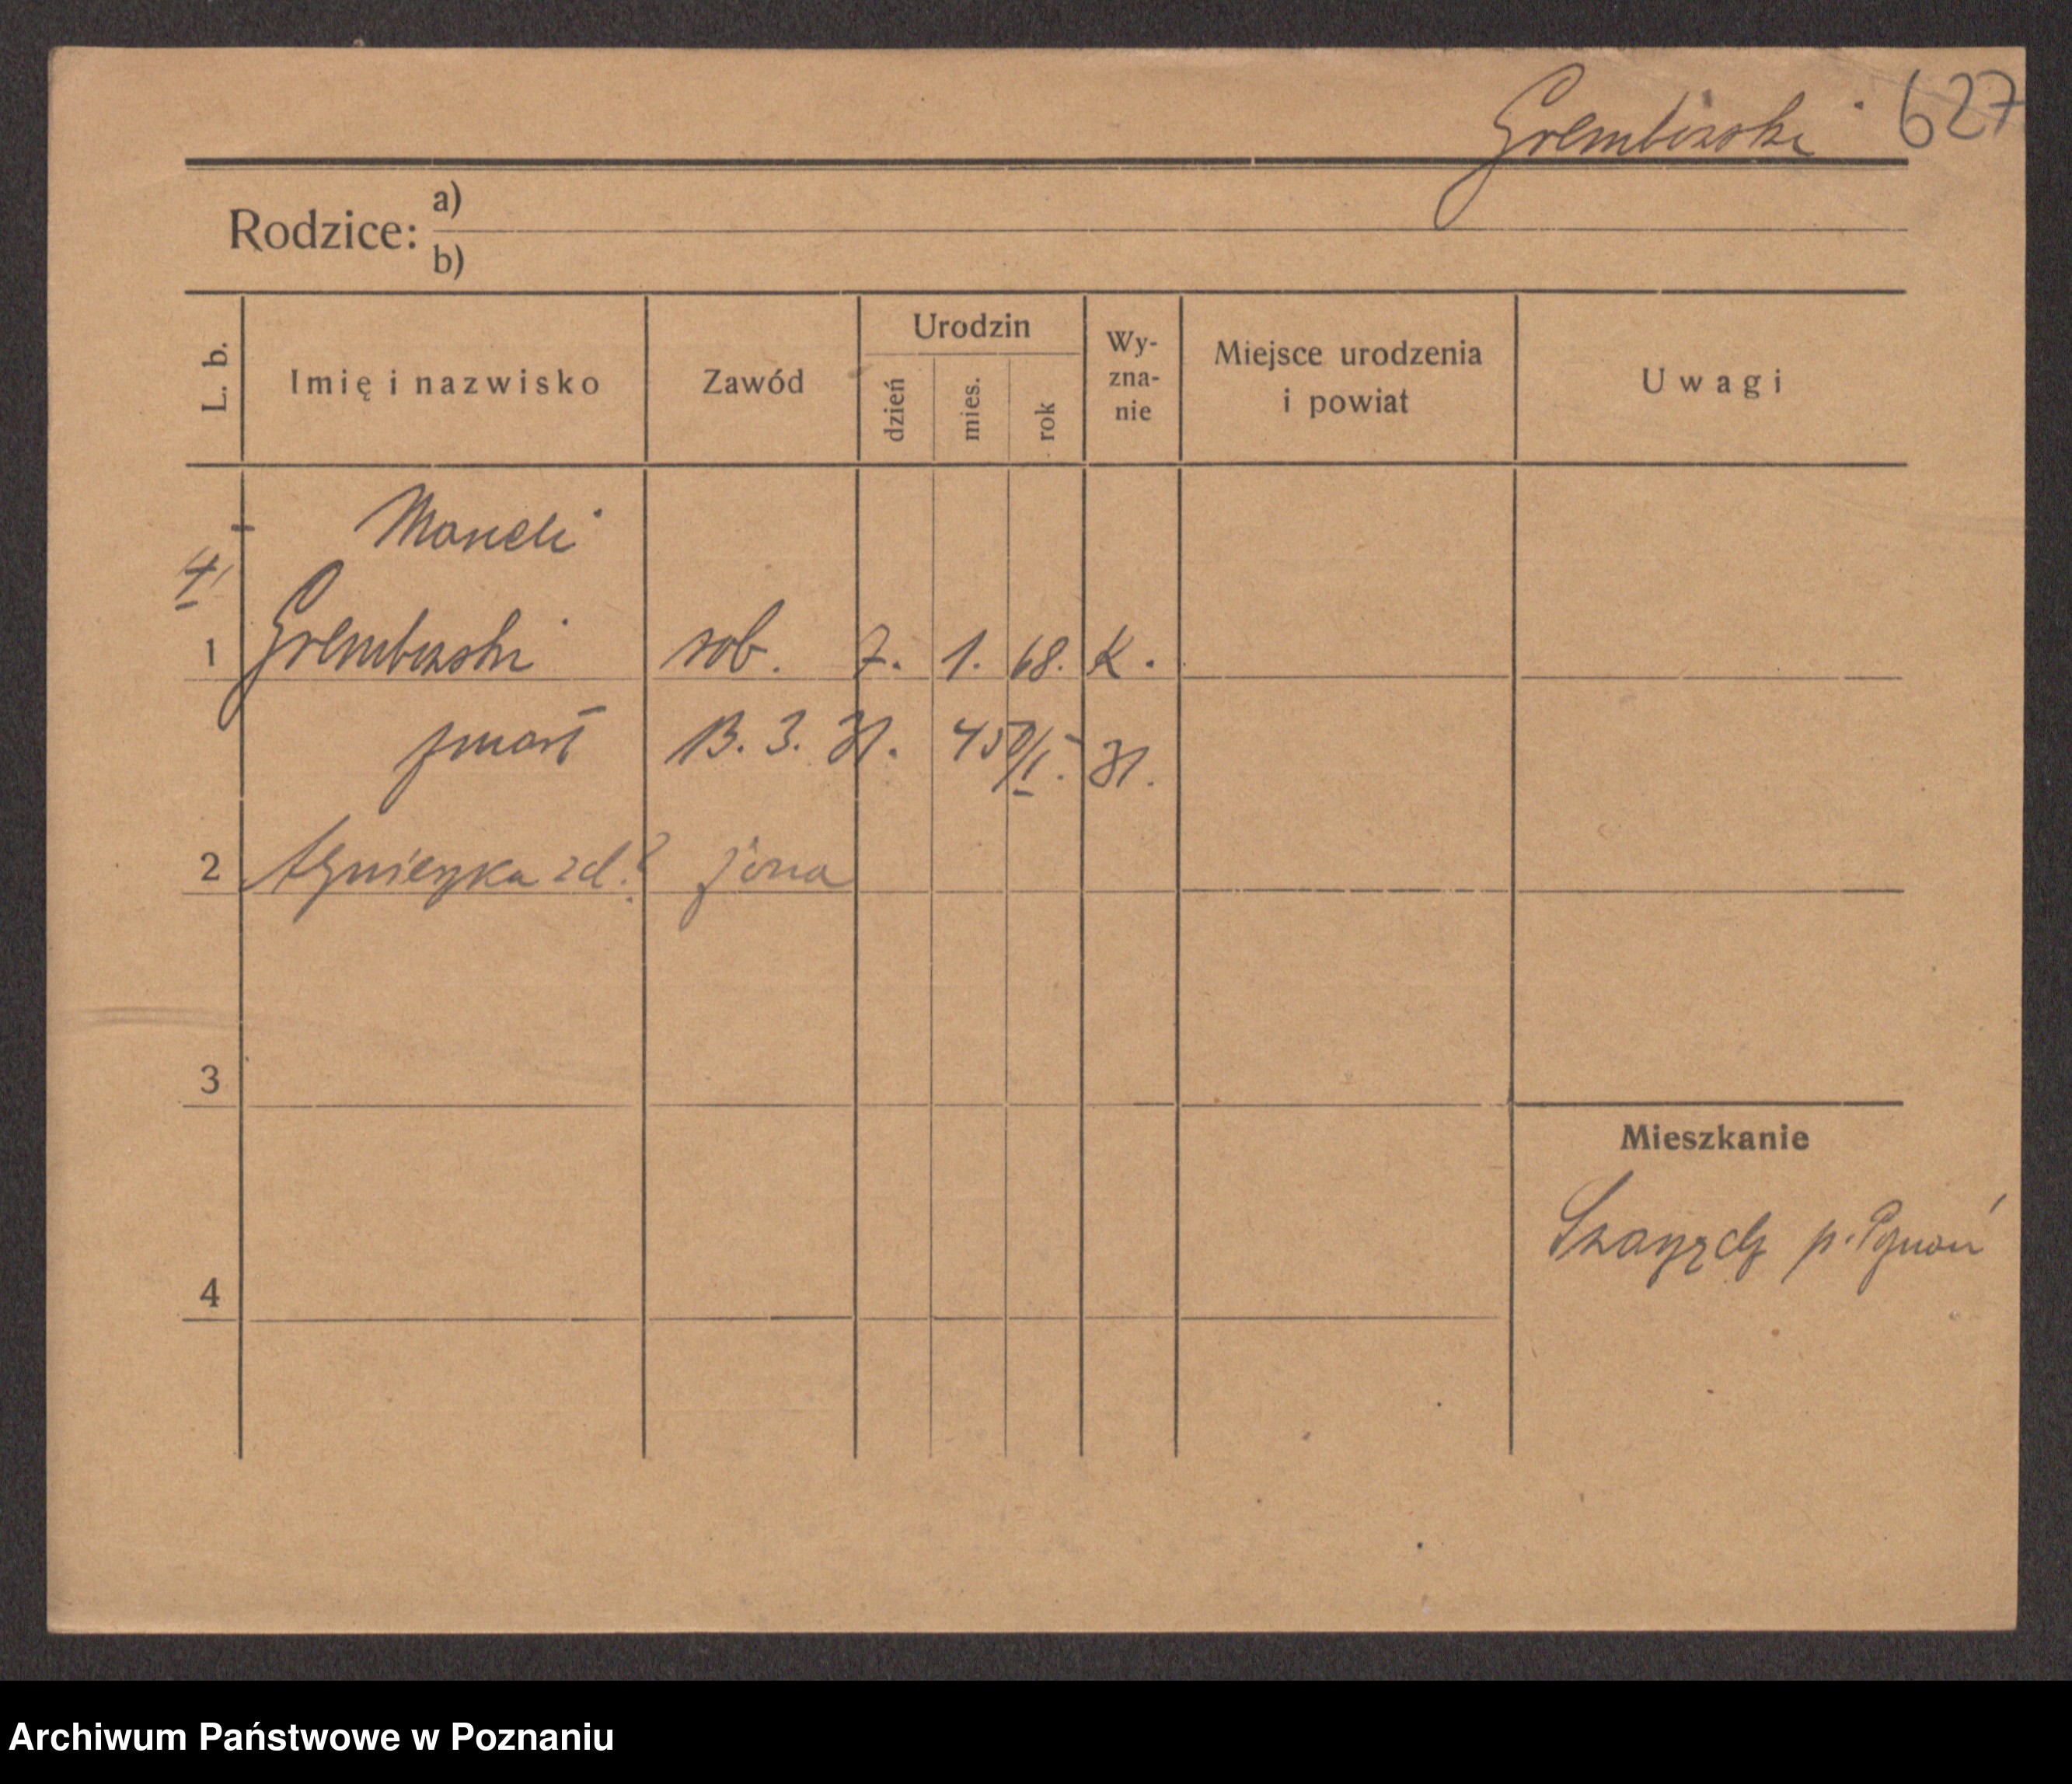 Grembowski 627
Rodzice: a)
b)
L. b. Imię i nazwisko Zawód Urodzin dzień mies. rok Wy-zna-nie Miejsce urodzenia i powiat Uwagi
1 Grembowski rob. 7. 1. 68. K.
zmarł 13. 3. 31. 31.
2 Agnieszka zd.? żona
3
Mieszkanie
p. Poznań
4
Archiwum Państwowe w Poznaniu